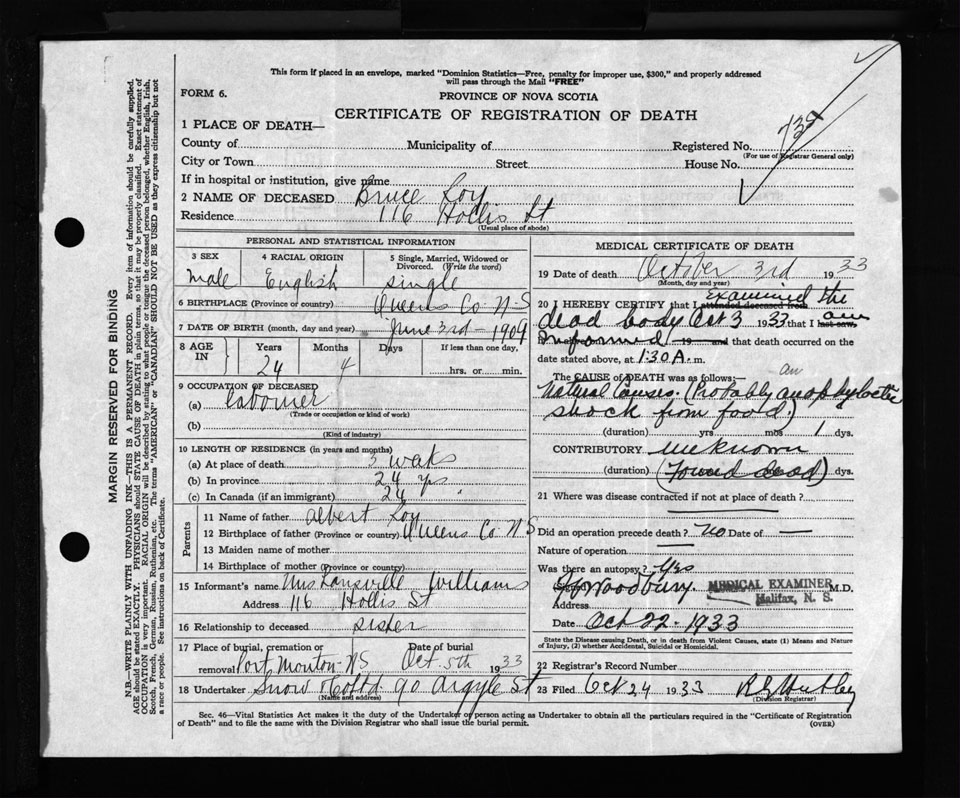 This form if placed in an envelope, marked "Dominion Statistics—Free, penalty for improper use, $300," and properly addressed
will pass through the Mail "FREE"
FORM 6.
PROVINCE OF NOVA SCOTIA
CERTIFICATE OF REGISTRATION OF DEATH
1 PLACE OF DEATH—
County of Municipality of Registered No.
(For use of Registrar General only)
City or Town Street House No.
If in hospital or institution, give name
2 NAME OF DECEASED Bruce Loy
Residence 116 Hollis St
(Usual place of abode)
PERSONAL AND STATISTICAL INFORMATION
3 SEX 4 RACIAL ORIGIN 5 Single, Married, Widowed or
Divorced. (Write the word)
Male English Single
6 BIRTHPLACE (Province or country) Queens Co N-S
7 DATE OF BIRTH (month, day and year) June 3rd - 1909
8 AGE IN Years Months Days If less than one day,
24 4 hrs. or min.
9 OCCUPATION OF DECEASED
(a) Labourer
(Trade or occupation or kind of work)
(b)
(Kind of industry)
10 LENGTH OF RESIDENCE (in years and months)
(a) At place of death 3 weks
(b) In province 24 yrs
(c) In Canada (if an immigrant) 24 "
Parents
11 Name of father Albert Loy
12 Birthplace of father (Province or country) Queens Co N S
13 Maiden name of mother
14 Birthplace of mother (Province or country)
15 Informant's name Mrs Williams
Address 116 Hollis St
16 Relationship to deceased Sister
17 Place of burial, cremation or Date of burial
removal Port Mouton-NS Oct 5th 1933
18 Undertaker Snow & Co Ltd 90 Argyle St
(Name and address)
MEDICAL CERTIFICATE OF DEATH
19 Date of death October 3rd 1933
(Month, day and year)
20 I HEREBY CERTIFY that I attended deceased from examined the
dead body Oct 3 1933 that I last saw am
Informed 19 and that death occurred on the
date stated above, at 1:30 A. m.
The CAUSE of DEATH was as follows:— an
Natural Causes. (Probably anaphylactic
shock from food)
(duration) yrs mos 1 dys.
CONTRIBUTORY Unknown
(duration) (Found dead) dys.
21 Where was disease contracted if not at place of death?
Did an operation precede death? No Date of —
Nature of operation
Was there an autopsy? Yes
Woodbury. MEDICAL EXAMINER M.D.
Halifax, N. S.
Address
Date Oct 22 - 1933
State the Disease causing Death, or in death from Violent Causes, state (1) Means and Nature
of Injury, (2) whether Accidental, Suicidal or Homicidal.
22 Registrar's Record Number
23 Filed Oct 24 1933
(Division Registrar)
Sec. 46—Vital Statistics Act makes it the duty of the Undertaker or person acting as Undertaker to obtain all the particulars required in the "Certificate of Registration
of Death" and to file the same with the Division Registrar who shall issue the burial permit. (OVER)
MARGIN RESERVED FOR BINDING
N.B.—WRITE PLAINLY WITH UNFADING INK—THIS IS A PERMANENT RECORD. Every item of information should be carefully supplied.
AGE should be stated EXACTLY. PHYSICIANS should STATE CAUSE OF DEATH in plain terms, so that it may be properly classified. Exact statement of
OCCUPATION is very important. RACIAL ORIGIN will be described by stating to what people or tongue the deceased person belonged, whether English, Irish,
Scotch, French, German, Russian, Ruthenian, etc. The terms "AMERICAN" or "CANADIAN" SHOULD NOT BE USED as they express citizenship but not
a race or people. See instructions on back of Certificate.